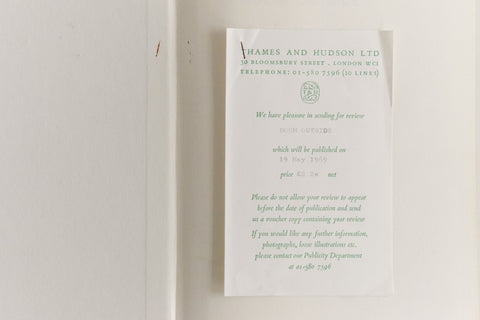 THAMES AND HUDSON LTD
30 BLOOMSBURY STREET . LONDON WC1
TELEPHONE: 01-580 7596 (10 LINES)
We have pleasure in sending for review
ROOM OUTSIDE
which will be published on
19 May 1969
price £2 2s net
Please do not allow your review to appear
before the date of publication and send
us a voucher copy containing your review
If you would like any further information,
photographs, loose illustrations etc.
please contact our Publicity Department
at 01-580 7596